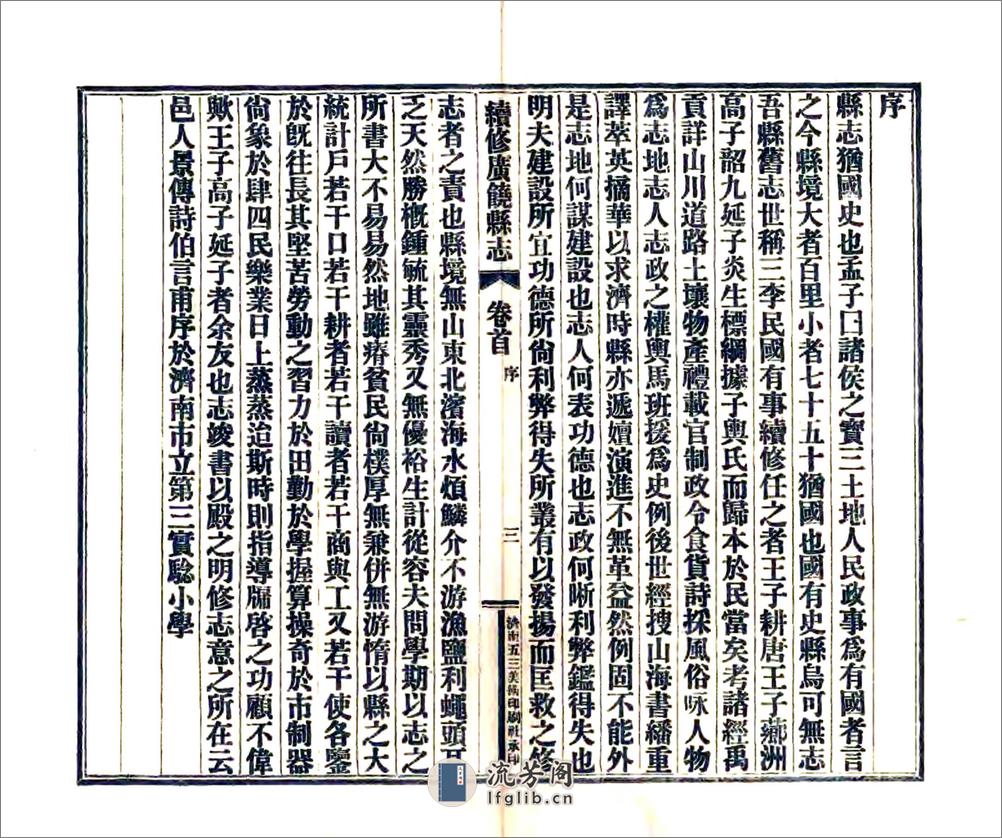 序
縣志猶國史也孟子曰諸侯之寶三土地人民政事爲有國者言
之今縣境大者百里小者七十五十猶國也國有史縣烏可無志
吾縣舊志世稱三李民國有事續修任之者王子耕唐王子薌洲
高子韶九延子炎生標綱據子輿氏而歸本於民當矣考諸經禹
貢詳山川道路土壤物產禮載官制政令食貨詩採風俗咏人物
爲志地志人志政之權輿馬班援爲史例後世經搜山海書繙重
譯萃英摘華以求濟時縣亦遞嬗演進不無革益然例固不能外
是志地何謀建設也志人何表功德也志政何晰利弊鑑得失也
明夫建設所宜功德所尙利弊得失所叢有以發揚而匡救之修
續修廣饒縣志 卷首 序 三 濟南五三美術印刷社承印
志者之責也縣境無山東北濱海水煩鱗介不游漁鹽利蠅頭耳
乏天然勝概鍾毓其靈秀又無優裕生計從容夫問學期以志之
所書大不易易然地雖瘠貧民尙樸厚無兼併無游惰以縣之大
統計戶若干口若干耕者若干讀者若干商與工又若干使各鑒
於旣往長其堅苦勞動之習力於田勤於學握算操奇於市制器
尙象於肆四民樂業日上蒸蒸迨斯時則指導牖啓之功顧不偉
歟王子高子延子者余友也志竣書以殿之明修志意之所在云
邑人景傳詩伯言甫序於濟南市立第三實騐小學
流芳閣
lfglib.cn